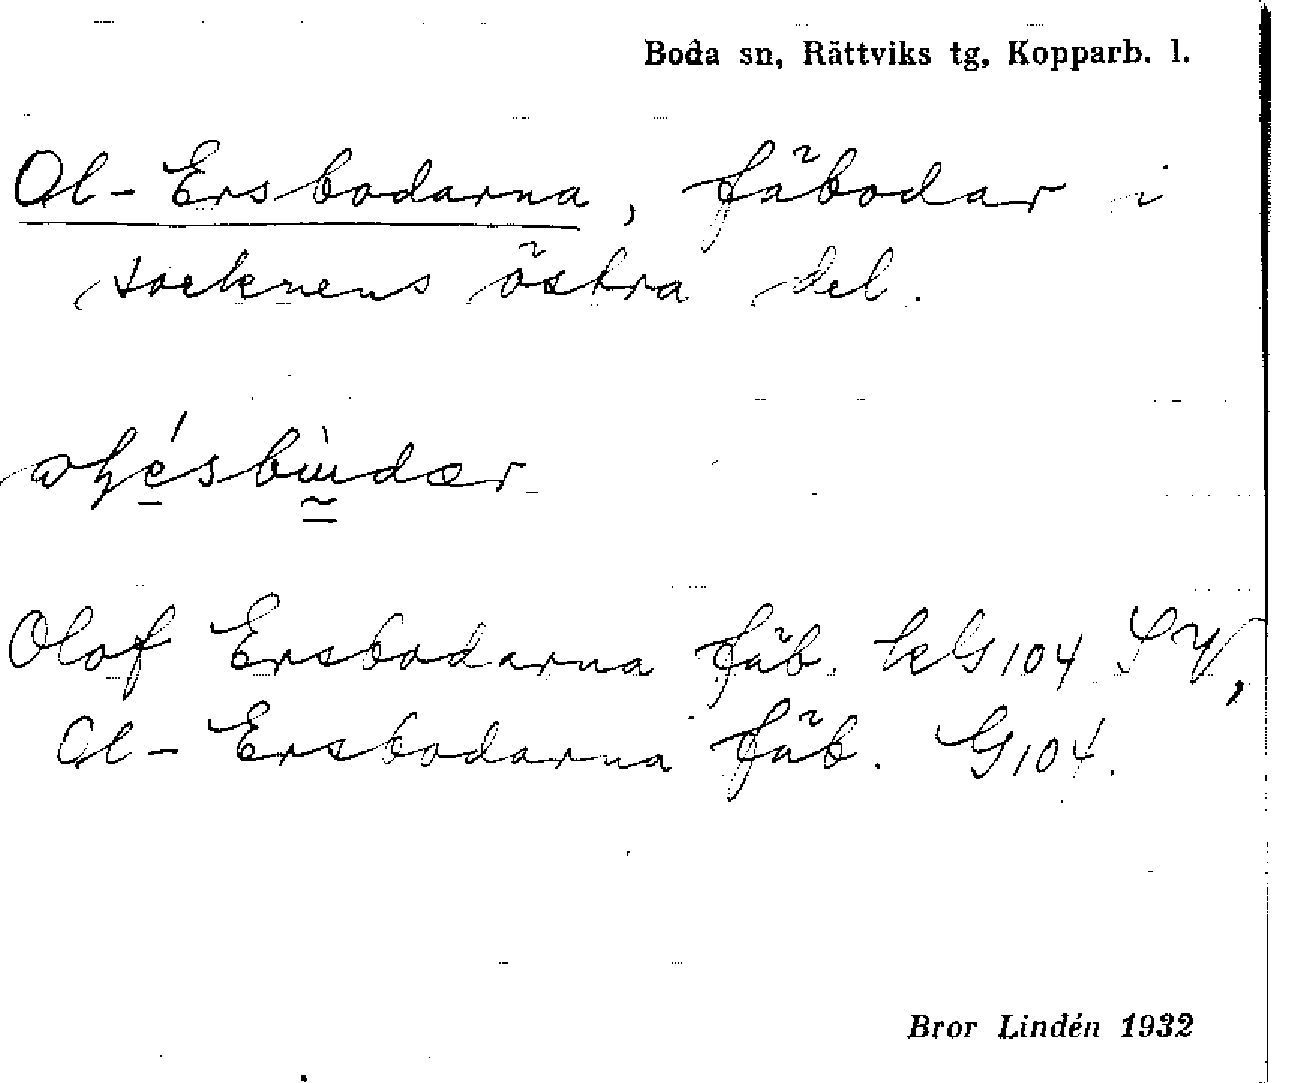 Boda sn, Rättviks tg, Kopparb. l.
Ol-Ersbodarna, fäbodar i
socknens östra del.
Olof Ersbodarna fäb. kG104 SV,
Ol-Ersbodarna fäb. G104.
Bror Lindén 1932